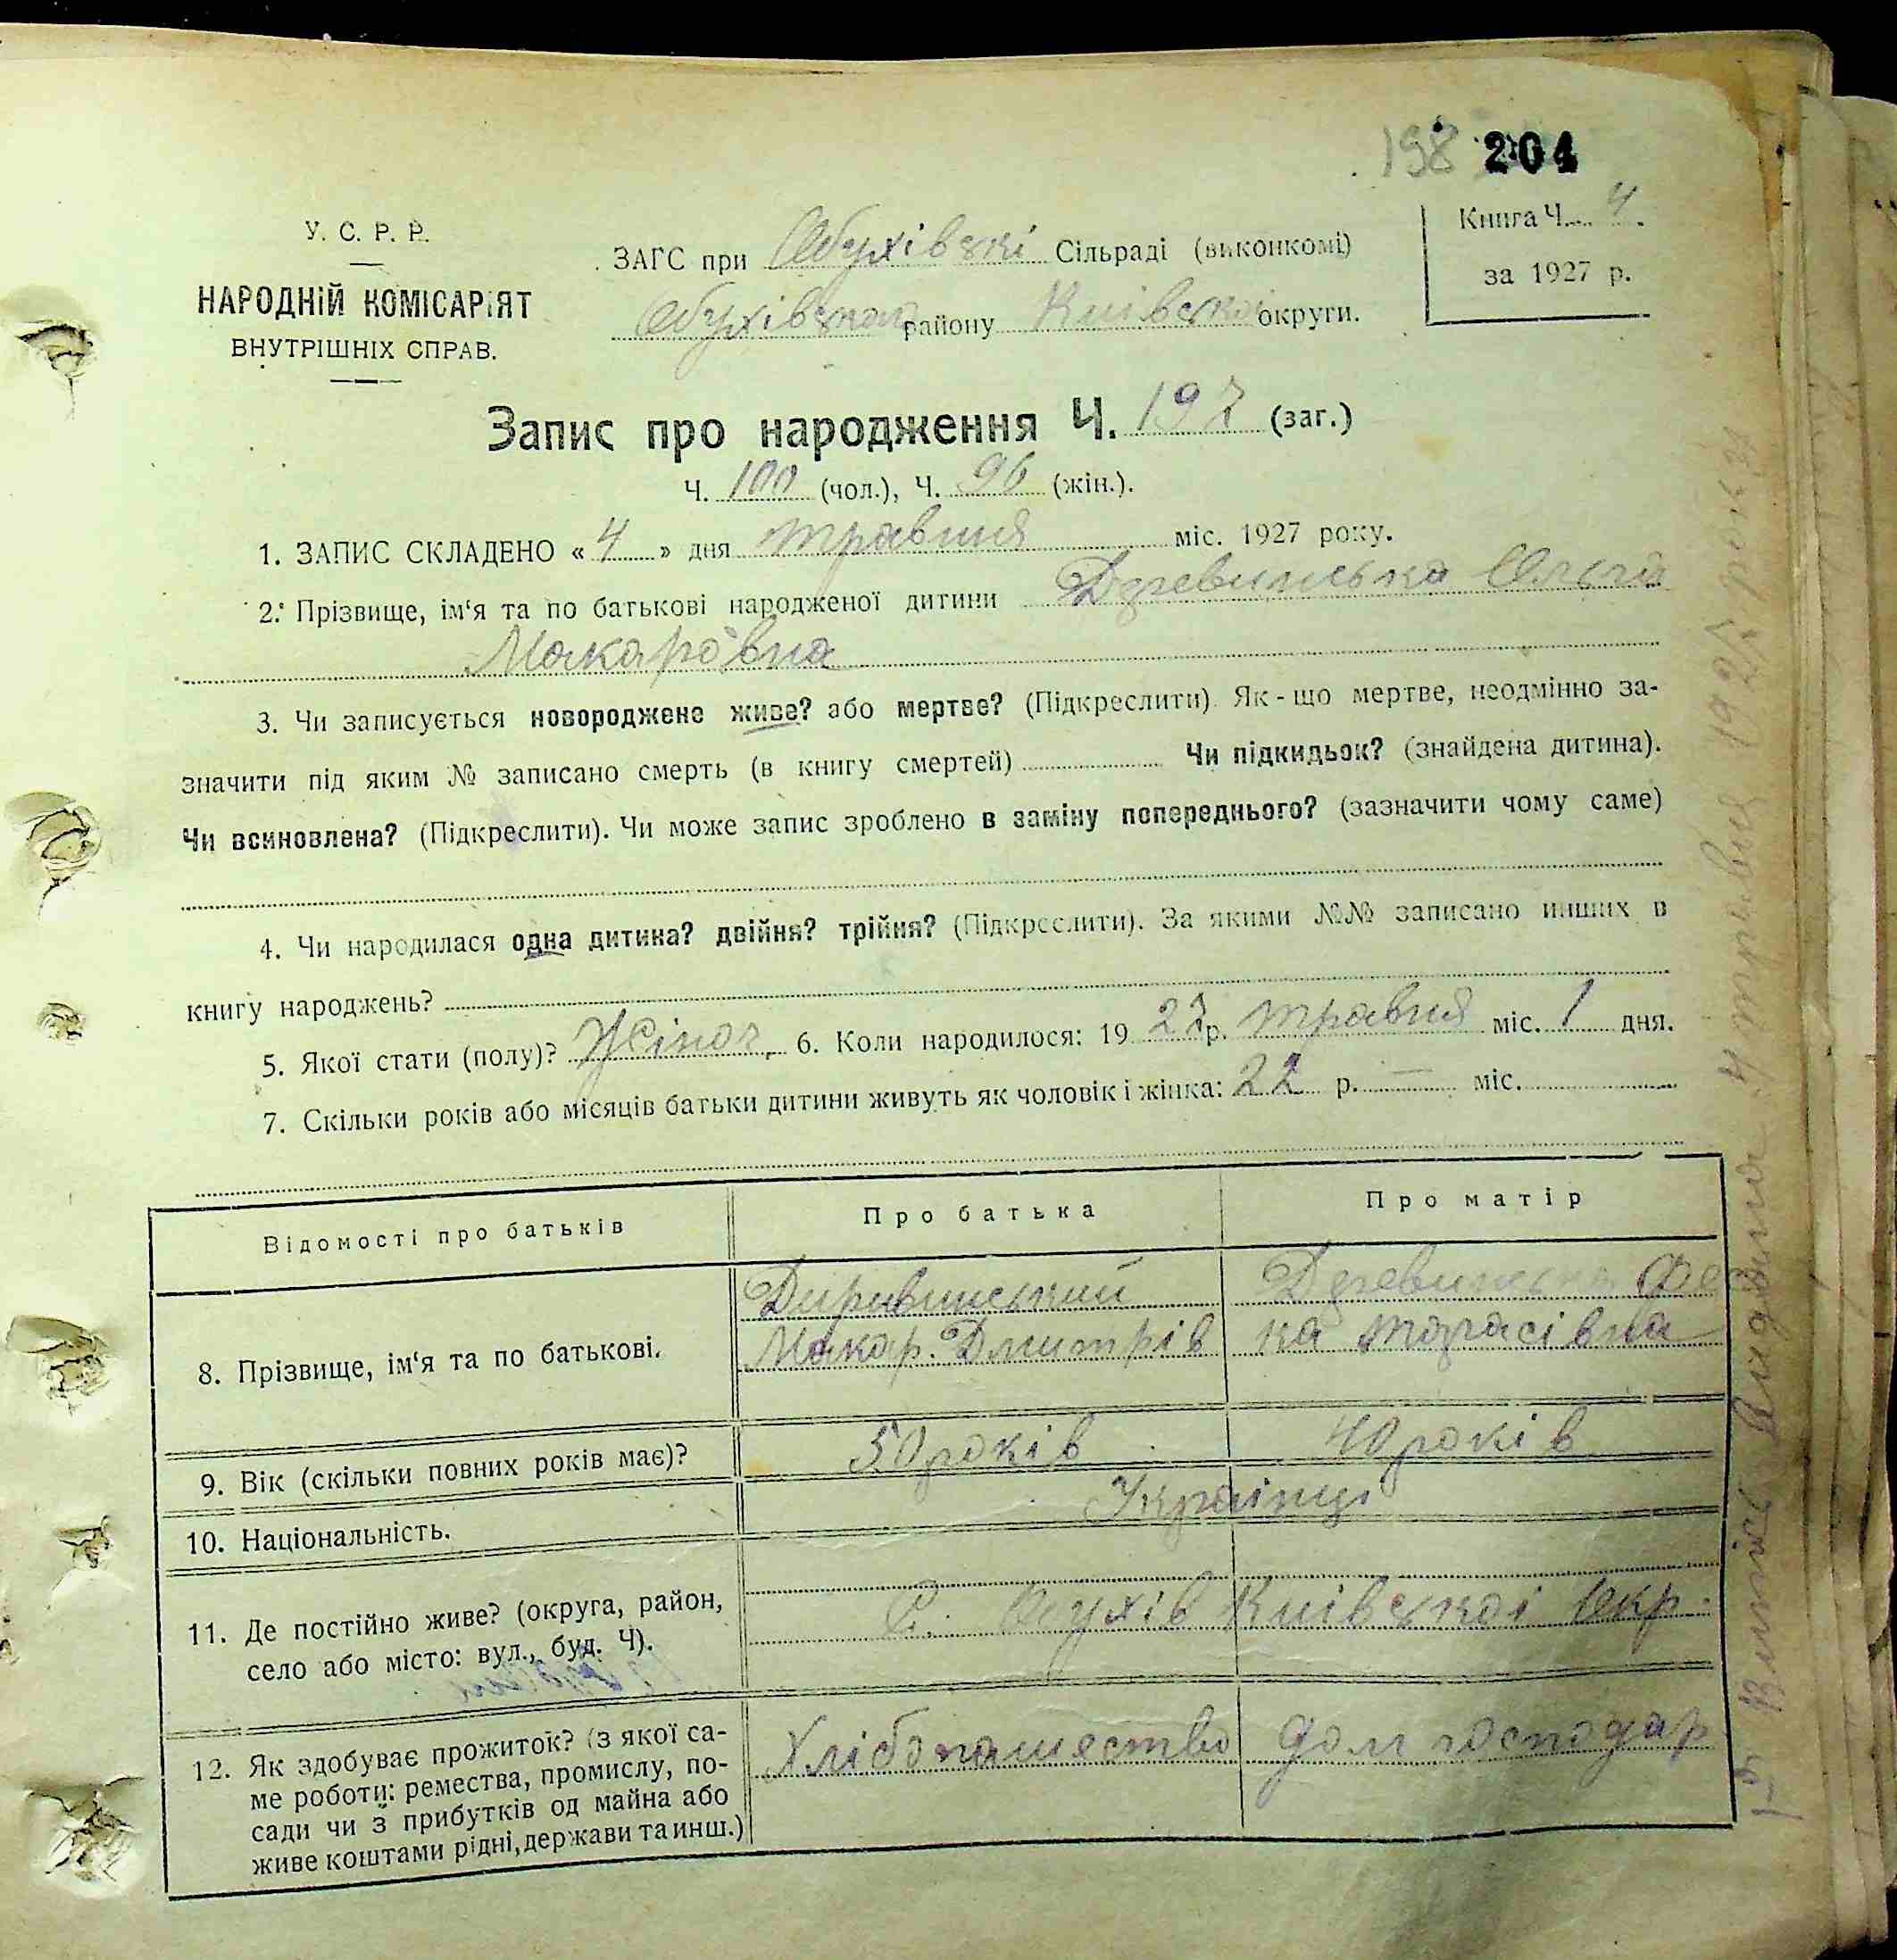 198 204
У. С. Р. Р.
НАРОДНІЙ КОМІСАРІЯТ
ВНУТРІШНІХ СПРАВ.
ЗАГС при Обухівскі Сільраді (виконкомі)
Обухівском району Київскої округи.
Книга Ч. 4
за 1927 р.
Запис про народження Ч. 197 (заг.)
Ч. 100 (чол.), Ч. 96 (жін.).
1. ЗАПИС СКЛАДЕНО « 4 » дня травня міс. 1927 року.
2. Прізвище, ім‘я та по батькові народженої дитини Деревинська Ольга
Макаровна
3. Чи записується новороджене живе? або мертве? (Підкреслити). Як-що мертве, неодмінно за-
значити під яким № записано смерть (в книгу смертей) Чи підкидьок? (знайдена дитина).
Чи всиновлена? (Підкреслити). Чи може запис зроблено в заміну попереднього? (зазначити чому саме)
4. Чи народилася одна дитина? двійня? трійня? (Підкреслити). За якими №№ записано инших в
книгу народжень?
5. Якої стати (полу)? Жіноч. 6. Коли народилося: 19 27 р. травня міс. 1 дня.
7. Скільки років або місяців батьки дитини живуть як чоловік і жінка: 22 р. — міс.
Відомості про батьків Про батька Про матір
8. Прізвище, ім‘я та по батькові.
Деривинський
Макар. Дмитрів
Деревинська Фе
ка Тарасівна
9. Вік (скільки повних років має)? 50 років 40 років
10. Національність. Українці
11. Де постійно живе? (округа, район,
село або місто: вул., буд. Ч).
С. Обухів Київської Окр.
12. Як здобуває прожиток? (з якої са-
ме роботи: ремества, промислу, по-
сади чи з прибутків од майна або
живе коштами рідні, держави та инш.)
Хлібопашество дом господар
Витяг видано 4 травня 1927 року